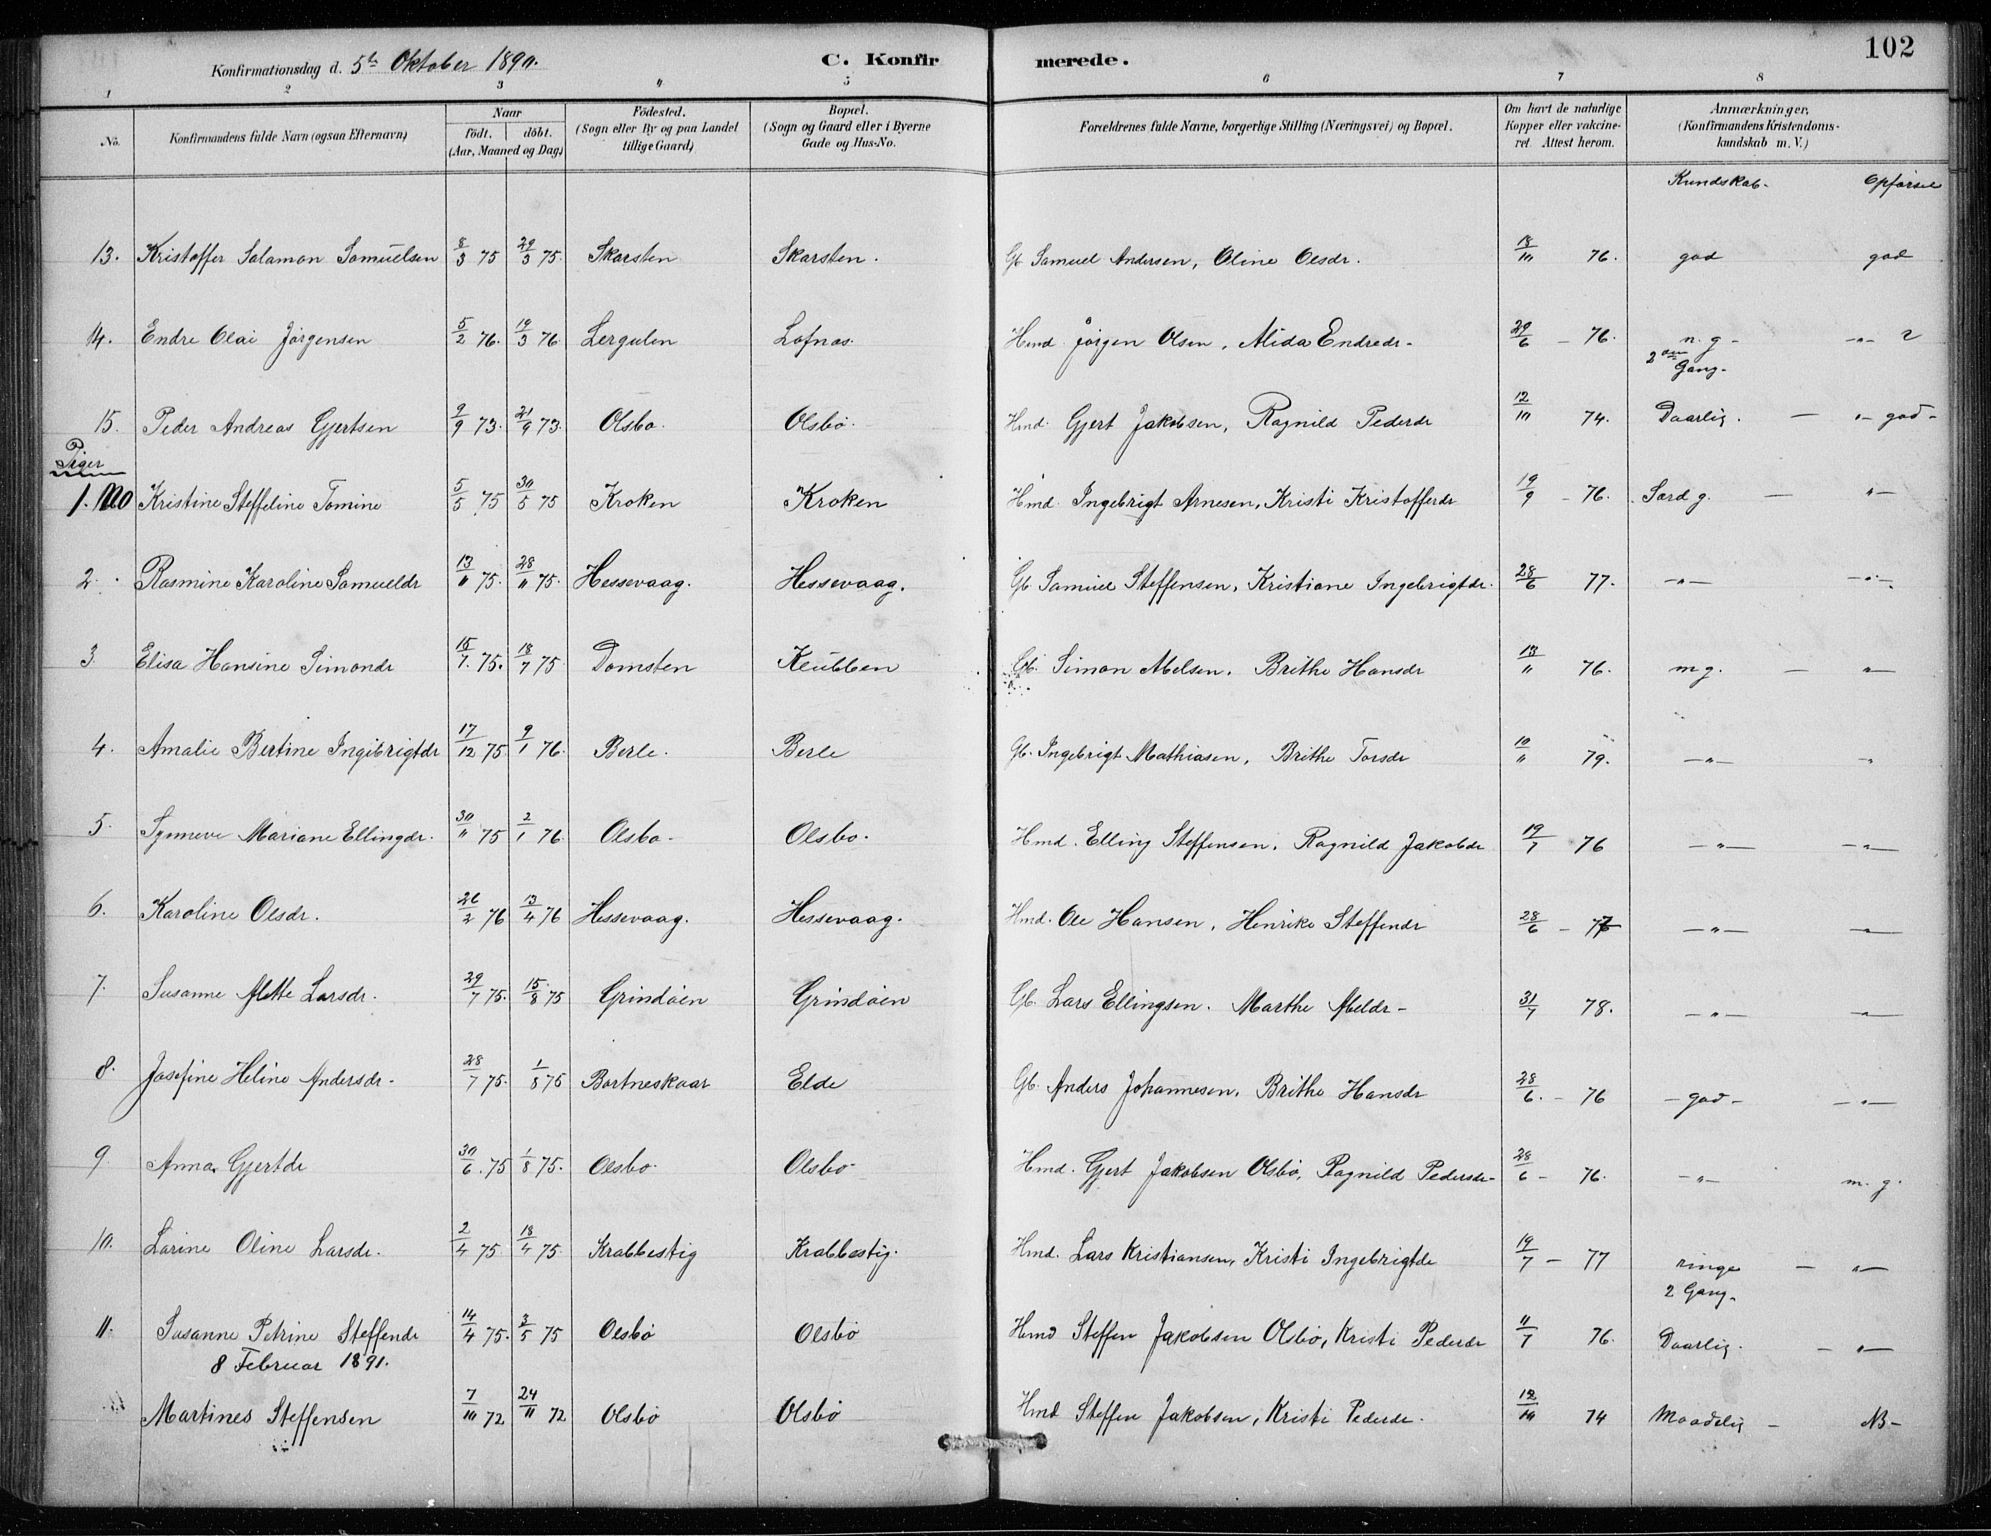 102
Konfirmationsdag d. 5te Oktober 1890. C. Konfirmerede.
1 2 3 4 5 6 7 8
No. Konfirmandens fulde Navn (ogsaa Efternavn) Naar født. døbt. (Aar, Maaned og Dag) Fødested. (Sogn eller By og paa Landet tillige Gaard) Bopæl. (Sogn og Gaard eller i Byerne Gade og Hus-No. Forældrenes fulde Navne, borgerlige Stilling (Næringsvei) og Bopæl. Om havt de naturlige Kopper eller vakcineret. Attest herom. Anmærkninger, (Konfirmandens Kristendomskundskab m. V.)
Kundskab. Opførsel
13. Kristoffer Salamon Samuelsen 8/3 75 29/3 75. Skarsten Skarsten. Gb. Samuel Andersen, Oline Olsdr. 18/10 76. god god
14. Endre Olai Jørgensen 5/2 76. 19/3 76 Lergulen Lofnæs. Hmd. Jørgen Olsen, Alida Endredr- 29/6 - 76. n. g - -"-
2den Gang-
15. Peder Andreas Gjertsen 9/9 73. 21/9 73. Olsbø. Olsbø. Hmd. Gjert Jakobsen, Ragnild Pederdr 12/10 74. Daarlig. - "- god-
Piger
1. Kristine Steffeline Tomine 5/5 75 30/5 75 Kroken Kroken Hmd. Ingebrigt Arnesen, Kristi Kristofferdr 19/9 - 76. Særd g. - "-
2. Rasmine Karoline Samueldr 13/11 75. 28/11 75. Hessevaag. Hessevaag. Gb. Samuel Steffensen, Kristiane Ingebrigtdr. 28/6 77. -"- -"-
3. Elisa Hansine Simondr 15/7. 75. 18/7 75 Domsten Klubben Gb. Simon Abelsen. Brithe Hansdr 13/11 76. m g. - "-
4. Amalie Bertine Ingibrigtdr 17/12 75 9/1 76. Berle. Berle Gb. Ingebrigt Mathiasen, Brithe Torsdr 10/11 79. -"- -"
5. Synneve Mariane Ellingdr. 30/11 75 2/1 76. Olsbø- Olsbo. Hmd. Elling Steffensen, Ragnild Jakobdr 19/7 76 -"- -"-
6. Karoline Olsdr. 26/2 76 13/4 76 Hessevaag. Hessevaag. Hmd. Ole Hansen, Henrike Steffendr 28/6 - -"- -"-
7. Susanne Alette Larsdr. 29/7 75. 15/8 75 Grindøen Grindøen Gb. Lars Ellingsen. Marthe Abeldr- 31/7 78. -"- -"-
8. Josefine Heline Andersdr- 28/7 75. 1/8 75 Bortneskaar Elde Gb. Anders Johannesen, Brithe Hansdr 28/6. - 76 -god- -"-
9. Anna Gjertdr 30/6. 75 1/8 75. Olsbø- Olsbø- Hmd. Gjert Jakobsen Olsbø, Ragnild Pedersdr- 28/6 - 76. -"- m. g.
10. Larine Oline Larsdr. 2/4 75. 18/4 75 Krabbestig Krabbestig. Hmd. Lars Kristiansen, Kristi Ingebrigtdr 19/7 - 77 ringe - "-
2 Gang-
11. Susanne Petrine Steffendr 14/4 75. 3/5 75 Olsbø Olsbø Hmd Steffen Jakobsen Olsbø, Kristi Pederdr 11/7 76. Daarlig. - "-
8 Februar 1891.
Martines Steffensen 7/10 72 24/11 72 Olsbø Olsbø Hmd Steffen Jakobsen, Kristi Pederdr. 12/10 74 Maadelig - NB-